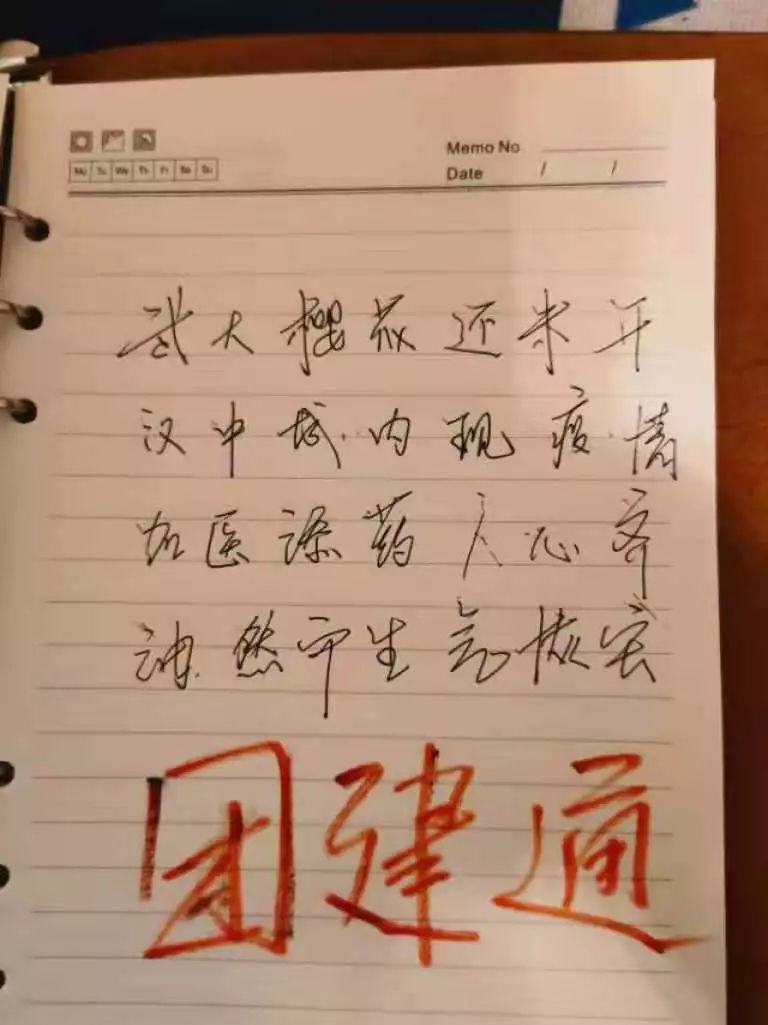 Memo No
Mo Tu We Th Fr Sa Su
Date / /
武大樱花还未开
汉中城内现疫情
加医添药人心齐
油然而生气恢宏
团建通